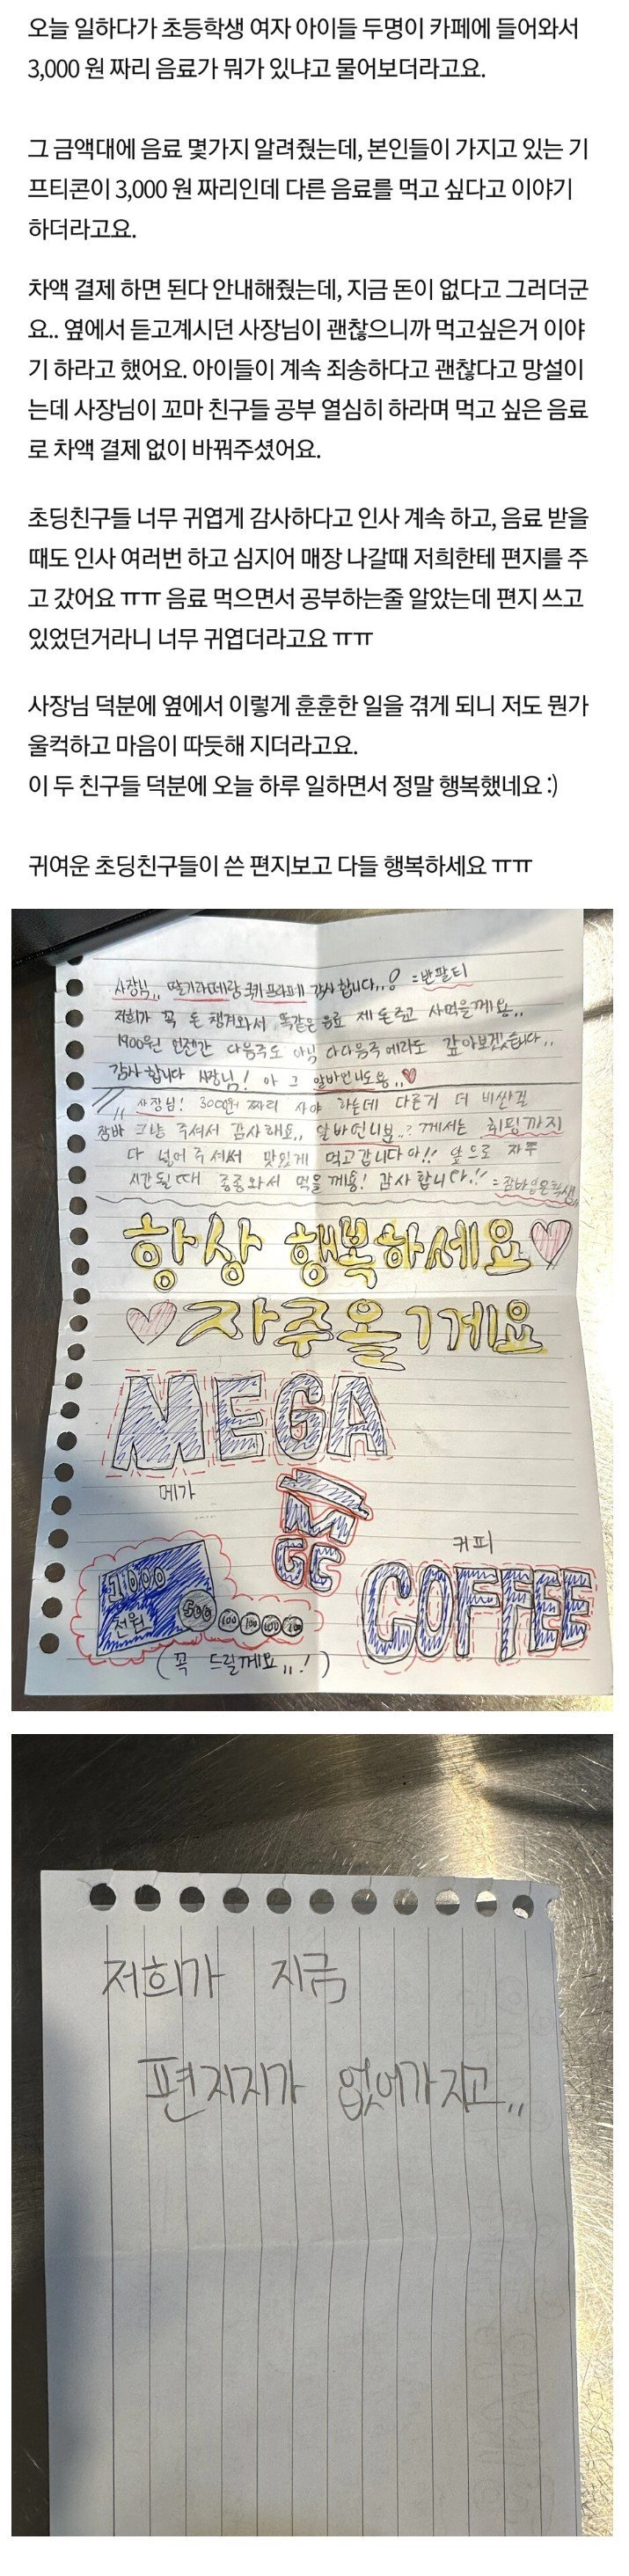 오늘 일하다가 초등학생 여자 아이들 두명이 카페에 들어와서
3,000 원 짜리 음료가 뭐가 있냐고 물어보더라고요.
그 금액대에 음료 몇가지 알려줬는데, 본인들이 가지고 있는 기
프티콘이 3,000 원 짜리인데 다른 음료를 먹고 싶다고 이야기
하더라고요.
차액 결제 하면 된다 안내해줬는데, 지금 돈이 없다고 그러더군
요.. 옆에서 듣고계시던 사장님이 괜찮으니까 먹고싶은거 이야
기 하라고 했어요. 아이들이 계속 죄송하다고 괜찮다고 망설이
는데 사장님이 꼬마 친구들 공부 열심히 하라며 먹고 싶은 음료
로 차액 결제 없이 바꿔주셨어요.
초딩친구들 너무 귀엽게 감사하다고 인사 계속 하고, 음료 받을
때도 인사 여러번 하고 심지어 매장 나갈때 저희한테 편지를 주
고 갔어요 ㅠㅠ 음료 먹으면서 공부하는줄 알았는데 편지 쓰고
있었던거라니 너무 귀엽더라고요 ㅠㅠ
사장님 덕분에 옆에서 이렇게 훈훈한 일을 겪게 되니 저도 뭔가
울컥하고 마음이 따듯해 지더라고요.
이 두 친구들 덕분에 오늘 하루 일하면서 정말 행복했네요 :)
귀여운 초딩친구들이 쓴 편지보고 다들 행복하세요 ㅠㅠ
사장님,, 딸기라떼랑 쿠키프라페 감사합니다,,! =반팔티
저희가 꼭 돈 챙겨와서 똑같은 음료 제 돈주고 사먹을께요..
1900원 언젠간 다음주도 아님 다다음주에라도 갚아보겠습니다..
감사합니다 사장님! 아 그 알바언니도용,,♥
사장님! 3000원 짜리 사야 하는데 다른거 더 비싼걸
그냥 주셔서 감사해요,, 알바언니분..? 께서는 휘핑까지
다 넣어주셔서 맛있게 먹고갑니다아!! 앞으로 자주
시간될때 종종와서 먹을께용! 감사합니다!! =잠바입은학생
항상 행복하세요♡
♡자주올게요
MEGA
메가
M
GC
커피
COFFEE
1000
천원
500 100 100 100 100
(꼭 드릴께요,,!)
저희가 지금
편지지가 없어가지고..